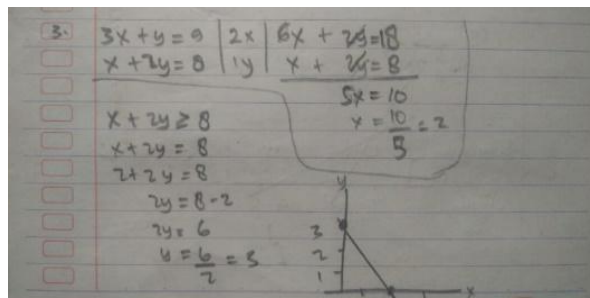 3. 3x + y = 9 | 2x | 6x + 2y = 18
x + 2y = 8 | 1y | x + 2y = 8
5x = 10
x = 10/5 = 2
x + 2y ≥ 8
x + 2y = 8
2 + 2y = 8
2y = 8 - 2
2y = 6
y = 6/2 = 3
y
3
2
1
x